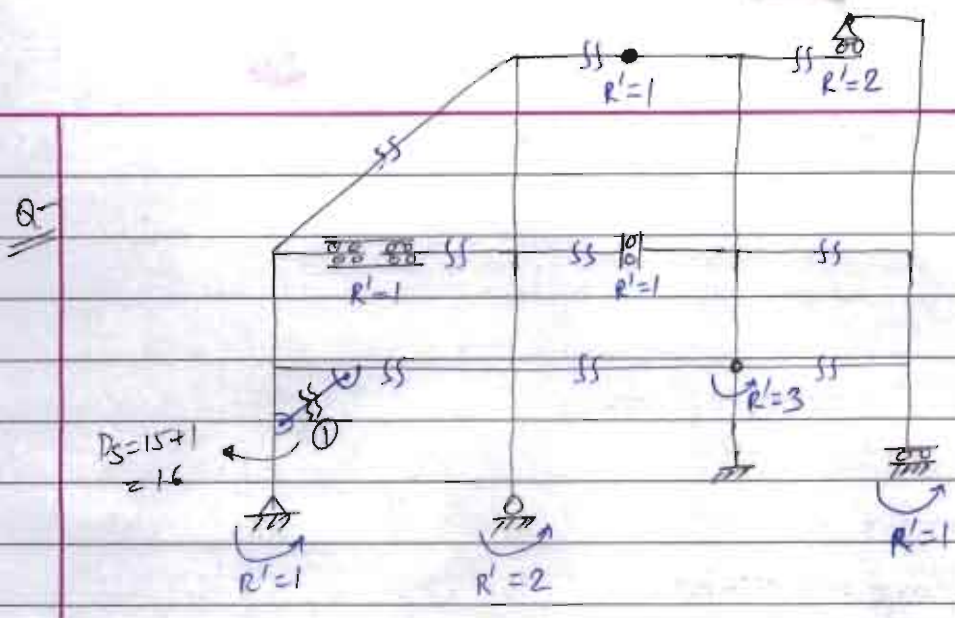 R'=1
R'=2
Q-
R'=1
R'=1
R'=3
①
Ds=15+1
=16
R'=1
R'=2
R'=1